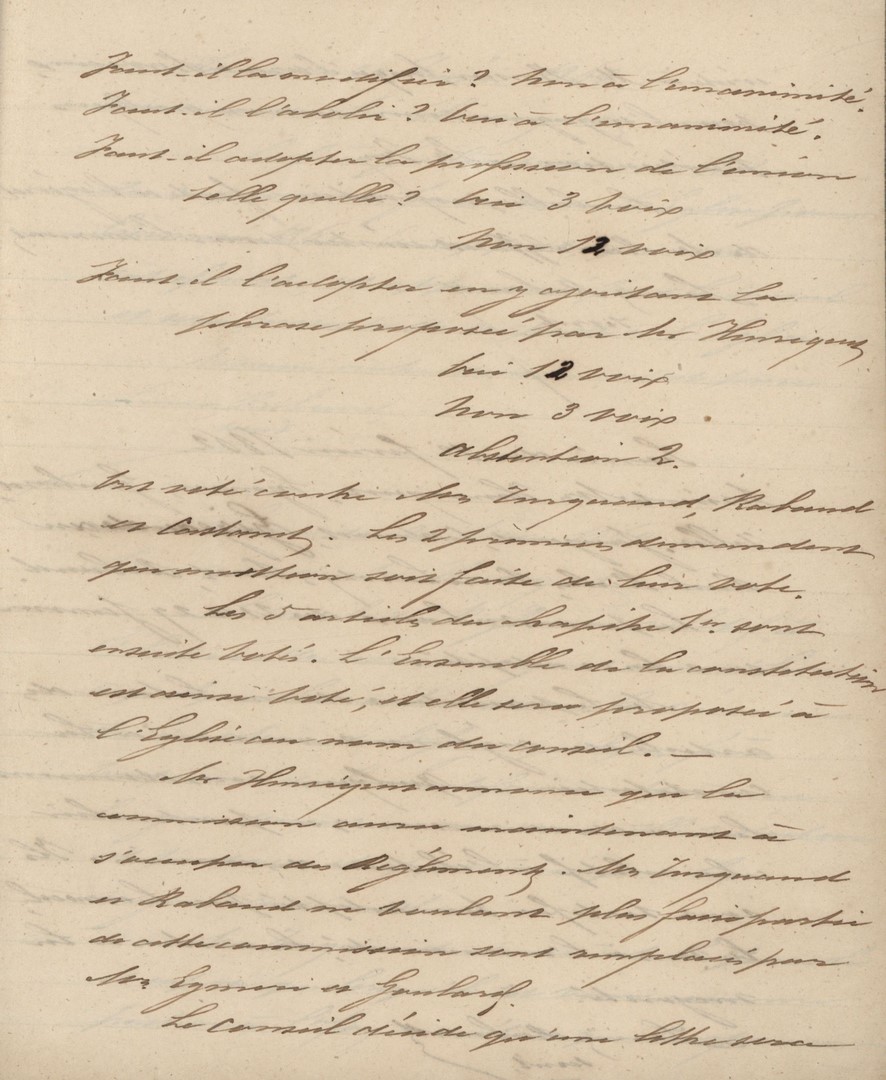 Faut-il la modifier ? Non à l'unanimité.
Faut-il l'abolir ? Oui à l'unanimité.
Faut-il adopter la profession de l'union
telle quelle ? Oui 3 voix
Non 12 voix
Faut-il l'adopter en y ajoutant la
phrase proposée par Mr
Oui 12 voix
Non 3 voix
Abstention 2.
Ont voté contre Mrs Turquand, Rabaud
et Castant. Les 2 premiers demandent
que mention soit faite de leur vote.
Les 5 articles du chapitre 1er sont
ensuite votés. L'Ensemble de la constitution
est ainsi voté, et elle sera proposée à
l'Eglise au nom du conseil. —
Mr annonce que la
commission aura maintenant à
s'occuper des Règlements. Mrs Turquand
et Rabaud ne voulant plus faire partie
de cette commission sont remplacés par
Mrs et Goulard.
Le Conseil décide qu'une lettre sera